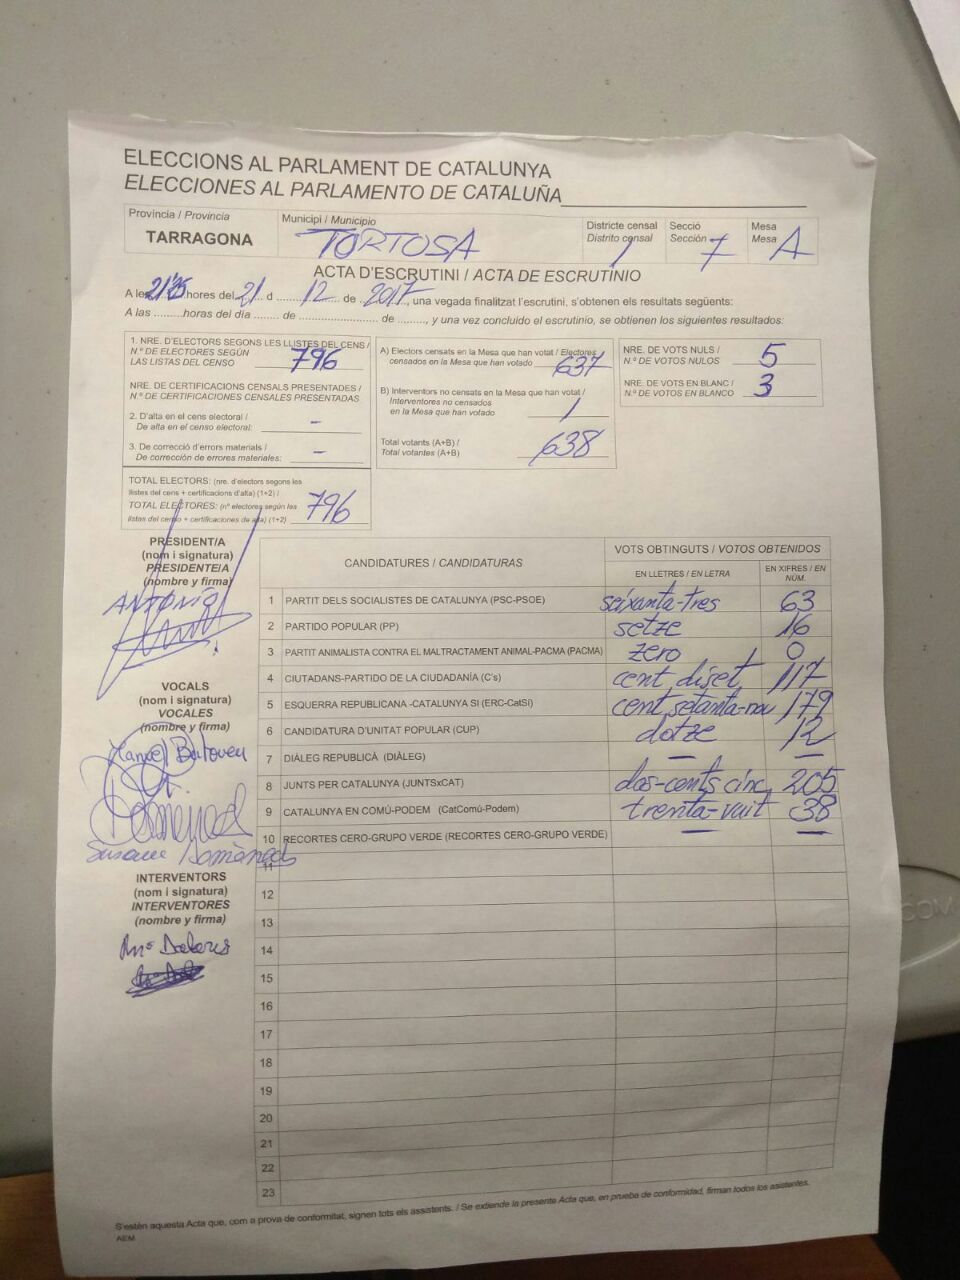 ELECCIONS AL PARLAMENT DE CATALUNYA
ELECCIONES AL PARLAMENTO DE CATALUÑA
Província / Provincia
TARRAGONA
Municipi / Municipio
TORTOSA
Districte censal
Distrito censal
1
Secció
Sección
7
Mesa
Mesa
A
ACTA D'ESCRUTINI / ACTA DE ESCRUTINIO
A les hores del 21 d 12 de 2017, una vegada finalitzat l'escrutini, s'obtenen els resultats següents:
A las .........horas del día ....... de ........................ de ........, y una vez concluido el escrutinio, se obtienen los siguientes resultados:
1. NRE. D'ELECTORS SEGONS LES LLISTES DEL CENS /
N.º DE ELECTORES SEGÚN
LAS LISTAS DEL CENSO 796
NRE. DE CERTIFICACIONS CENSALS PRESENTADES /
N.º DE CERTIFICACIONES CENSALES PRESENTADAS
2. D'alta en el cens electoral /
De alta en el censo electoral: -
3. De correcció d'errors materials /
De corrección de errores materiales: -
TOTAL ELECTORS: (nre. d'electors segons les
llistes del cens + certificacions d'alta) (1+2) /
TOTAL ELECTORES: (nº electores según las
listas del censo + certificaciones de alta) (1+2) 796
A) Electors censats en la Mesa que han votat / Electores
censados en la Mesa que han votado 637
B) Interventors no censats en la Mesa que han votat /
Interventores no censados
en la Mesa que han votado 1
Total votants (A+B) /
Total votantes (A+B) 638
NRE. DE VOTS NULS /
N.º DE VOTOS NULOS 5
NRE. DE VOTS EN BLANC /
N.º DE VOTOS EN BLANCO 3
PRESIDENT/A
(nom i signatura)
PRESIDENTE/A
(nombre y firma)
ANTONIO
VOCALS
(nom i signatura)
VOCALES
(nombre y firma)
INTERVENTORS
(nom i signatura)
INTERVENTORES
(nombre y firma)
Mª Dolores
CANDIDATURES / CANDIDATURAS
VOTS OBTINGUTS / VOTOS OBTENIDOS
EN LLETRES / EN LETRA
EN XIFRES / EN NÚM.
1 PARTIT DELS SOCIALISTES DE CATALUNYA (PSC-PSOE) seixanta-tres 63
2 PARTIDO POPULAR (PP) setze 16
3 PARTIT ANIMALISTA CONTRA EL MALTRACTAMENT ANIMAL-PACMA (PACMA) zero 0
4 CIUTADANS-PARTIDO DE LA CIUDADANÍA (C's) cent disset 117
5 ESQUERRA REPUBLICANA -CATALUNYA SI (ERC-CatSí) cent setanta-nou 179
6 CANDIDATURA D'UNITAT POPULAR (CUP) dotze 12
7 DIÀLEG REPUBLICÀ (DIÀLEG) — —
8 JUNTS PER CATALUNYA (JUNTSxCAT) dos-cents cinc 205
9 CATALUNYA EN COMÚ-PODEM (CatComú-Podem) trenta-vuit 38
10 RECORTES CERO-GRUPO VERDE (RECORTES CERO-GRUPO VERDE) — —
11
12
13
14
15
16
17
18
19
20
21
22
23
S'estén aquesta Acta que, com a prova de conformitat, signen tots els assistents. / Se extiende la presente Acta que, en prueba de conformidad, firman todos los asistentes.
AEM